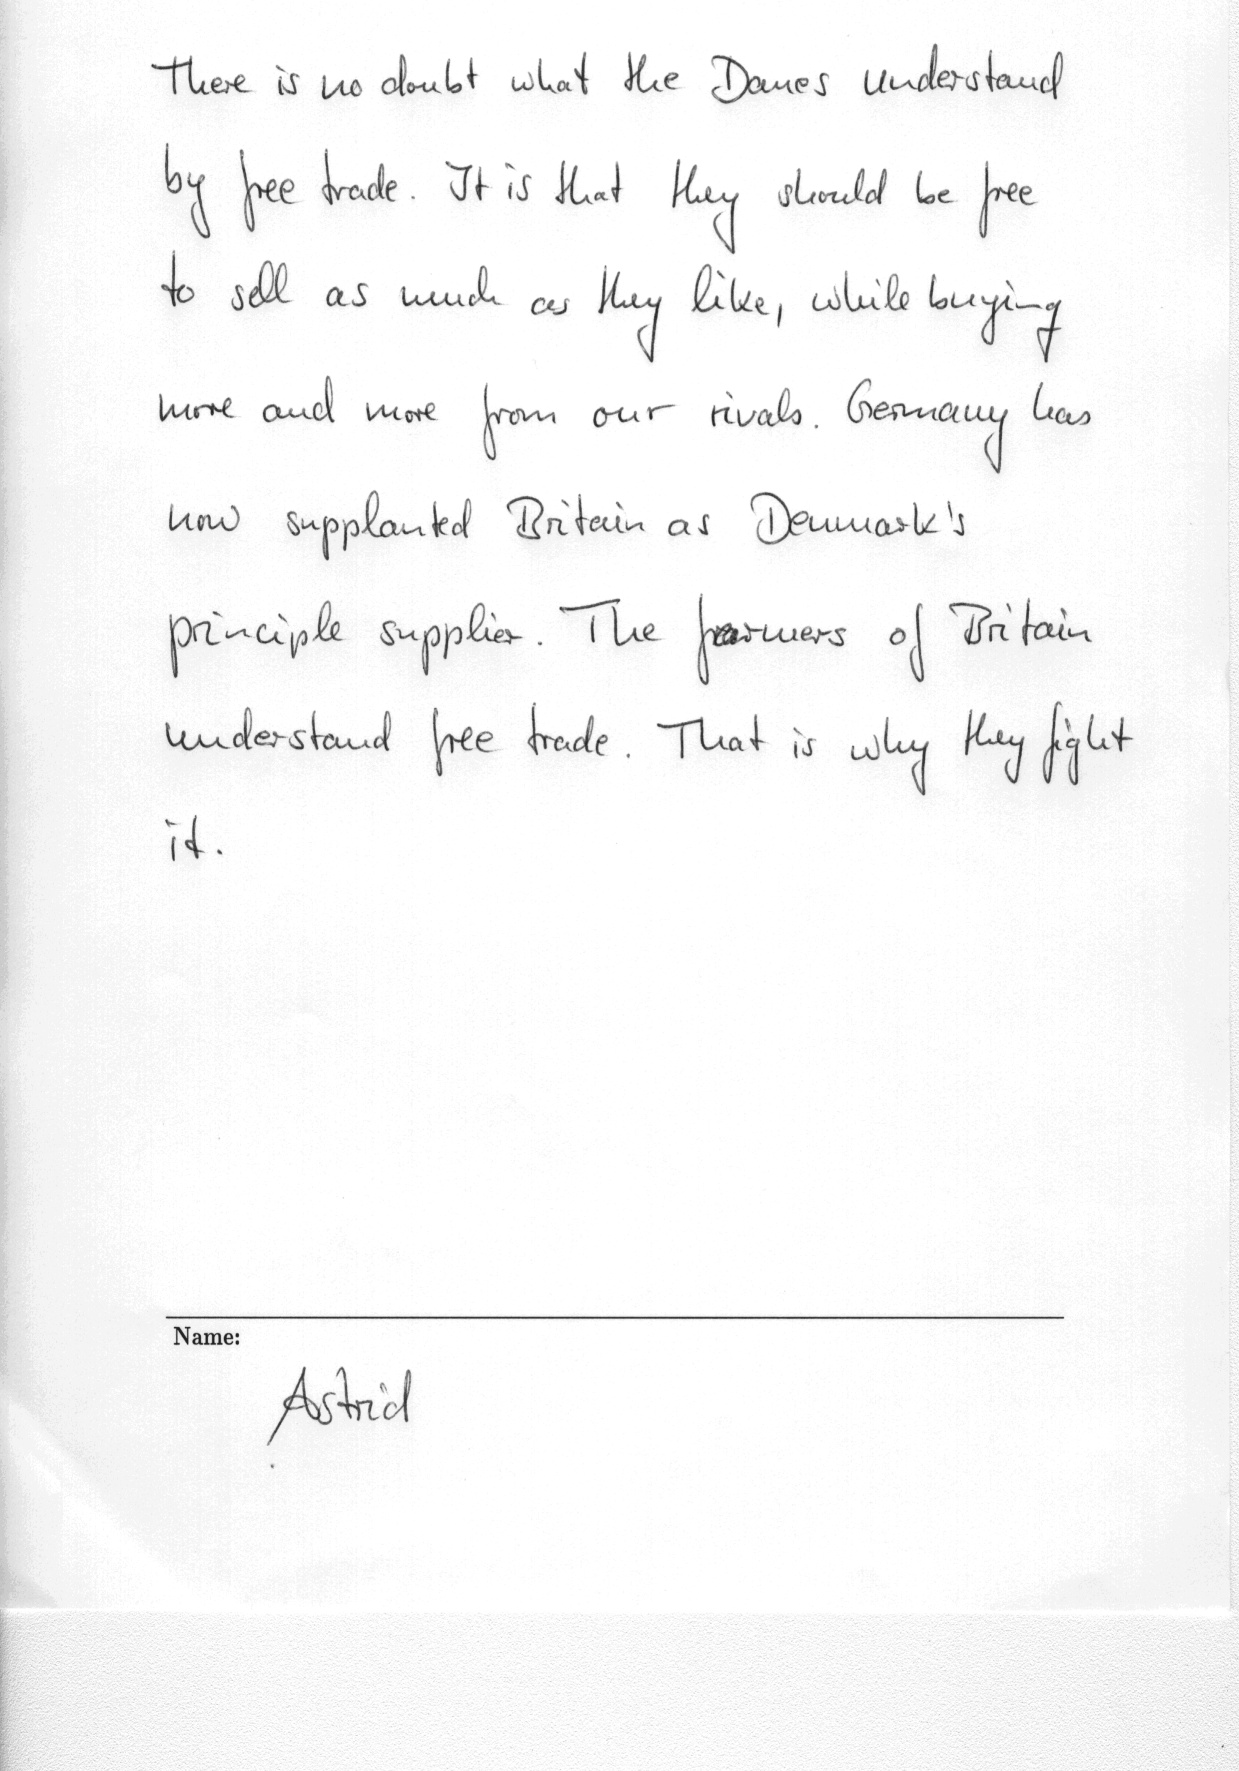 There is no doubt what the Danes understand
by free trade. It is that they should be free
to sell as much as they like, while buying
more and more from our rivals. Germany has
now supplanted Britain as Denmark's
principle supplier. The farmers of Britain
understand free trade. That is why they fight
it.
Name:
Astrid